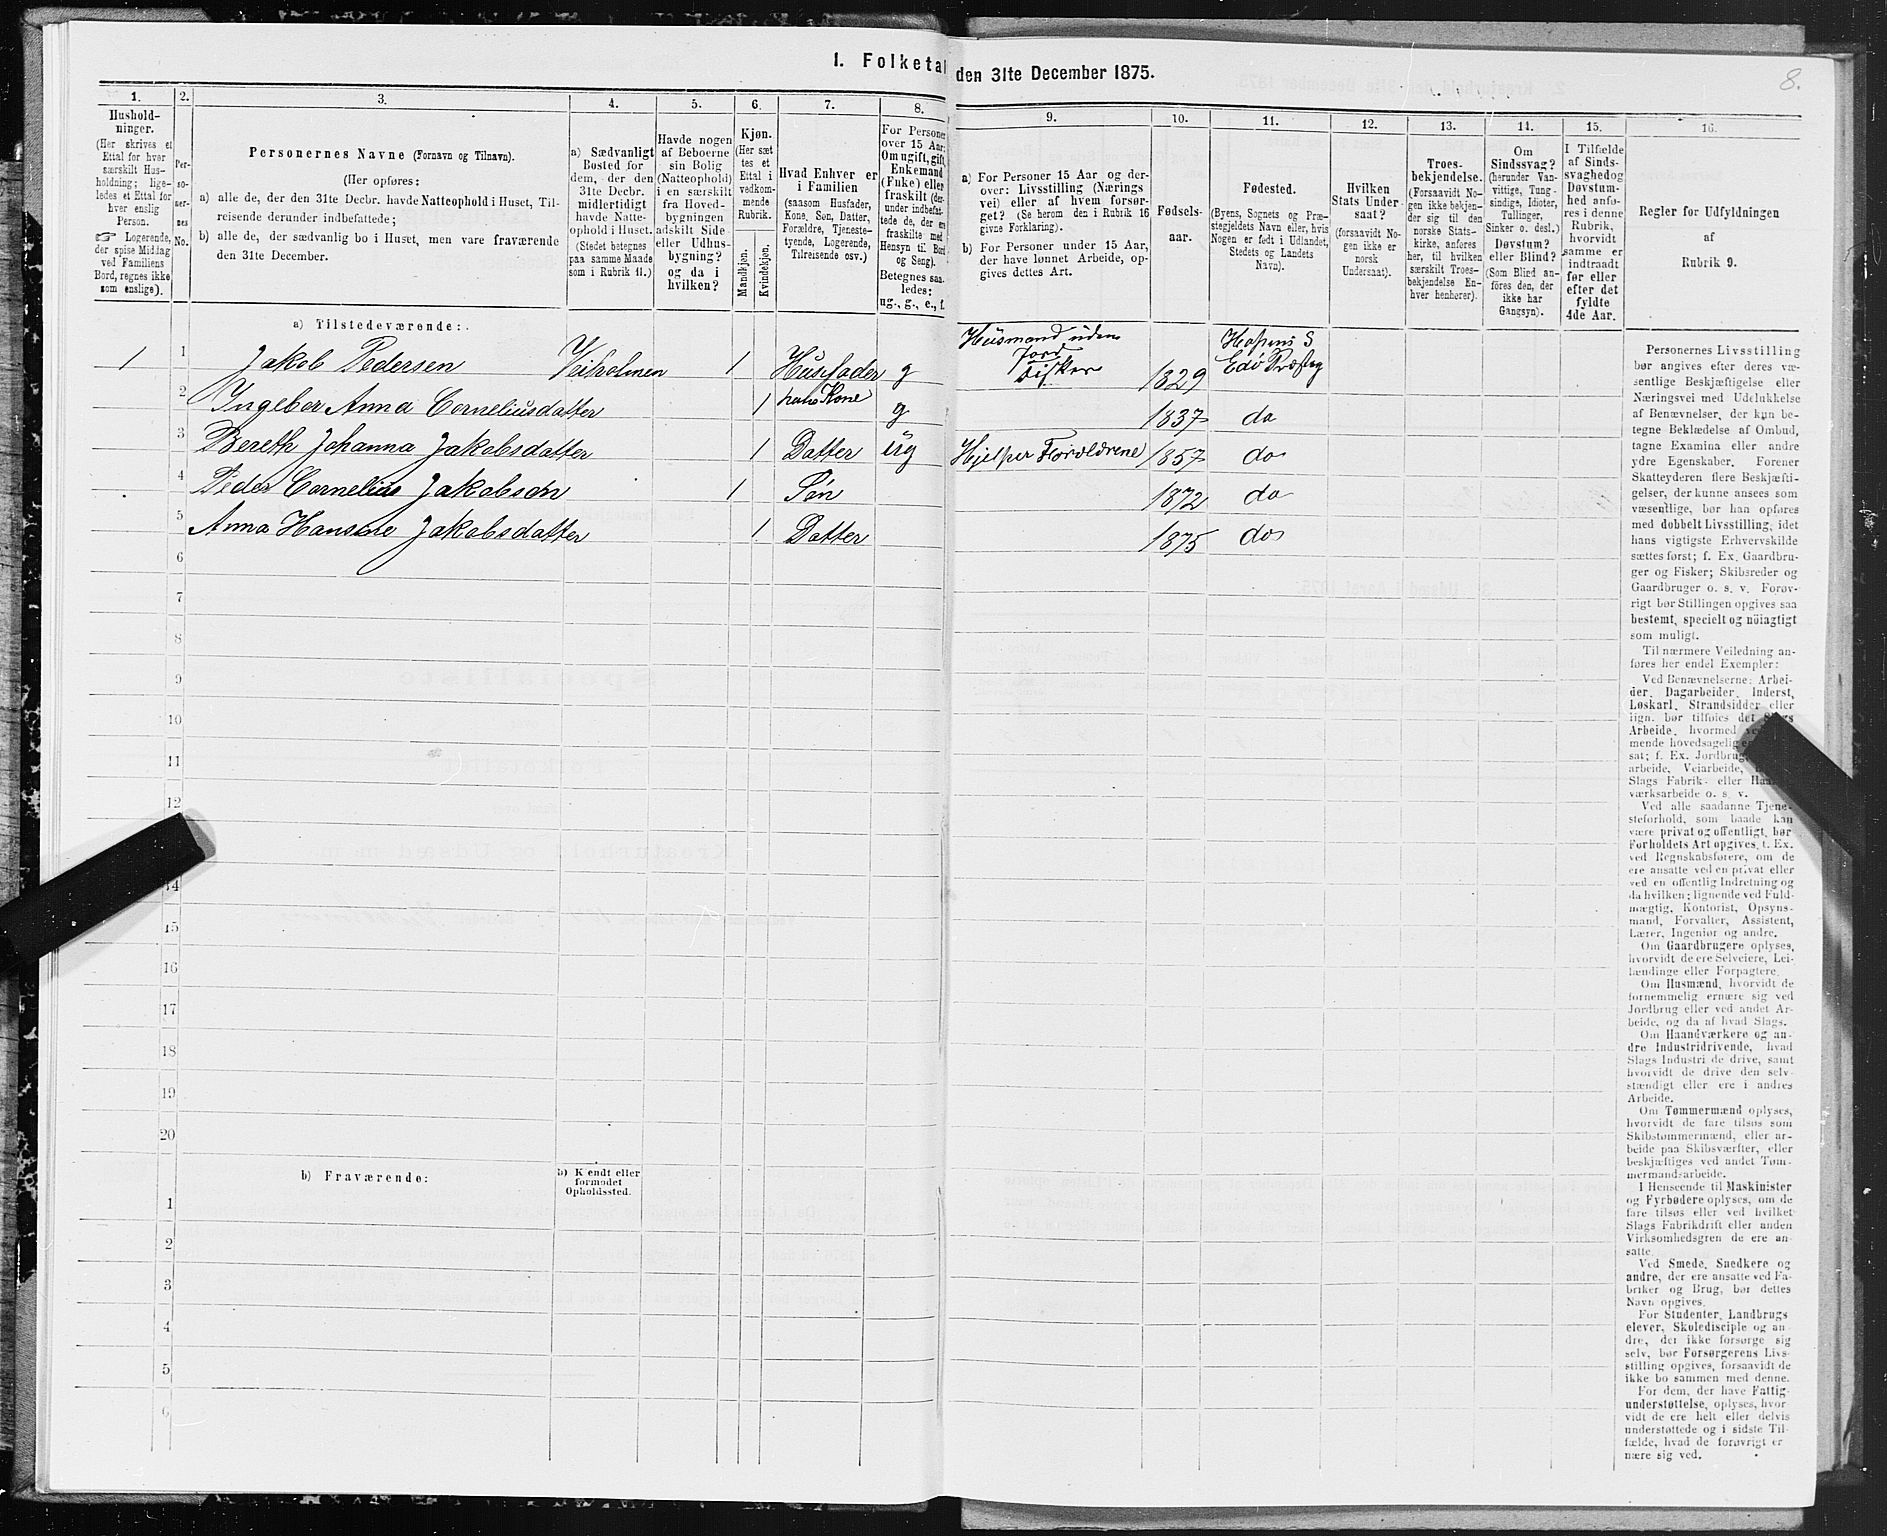 1. Folketal den 31te December 1875.
8.
1.
Hushold-
ninger.
(Her skrives et
Ettal for hver
særskilt Hus-
holdning; lige-
ledes et Ettal for
hver enslig
Person.
☞ Logerende,
der spise Middag
ved Familiens
Bord, regnes ikke
som enslige).
2.
Per-
so-
ner-
nes
No.
3.
Personernes Navne (Fornavn og Tilnavn).
(Her opføres:
a) alle de, der den 31te Decbr. havde Natteophold i Huset, Til-
reisende derunder indbefattede;
b) alle de, der sædvanlig bo i Huset, men vare fraværende
den 31te December.
4.
a) Sædvanligt
Bosted for
dem, der den
31te Decbr.
midlertidigt
havde Natte-
ophold i Huset.
(Stedet betegnes
paa samme Maade
som i Rubrik 11.)
5.
Havde nogen
af Beboerne
sin Bolig
(Natteophold)
i en særskilt
fra Hoved-
bygningen
adskilt Side-
eller Udhus-
bygning?
og da i
hvilken?
6.
Kjøn.
(Her sæt-
tes et
Ettal i
vedkom-
mende
Rubrik.
Mandkjøn.
Kvindekjøn.
7.
Hvad Enhver er
i Familien
(saasom Husfader,
Kone, Søn, Datter,
Forældre, Tjeneste-
tyende, Logerende,
Tilreisende osv.)
8.
For Personer
over 15 Aar:
Om ugift, gift,
Enkemand
(Fuke) eller
fraskilt (der-
under indbefat-
tede de, der ere
fraskilte med
Hensyn til Bord
og Seng).
Betegnes saa-
ledes:
ug., g., e., f.
9.
a) For Personer 15 Aar og der-
over: Livsstilling (Nærings
vei) eller af hvem forsør-
get? (Se herom den i Rubrik 16
givne Forklaring).
b) For Personer under 15 Aar,
der have lønnet Arbeide, op-
gives dettes Art.
10.
Fødsels-
aar.
11.
Fødested.
(Byens, Sognets og Præ-
stegjeldets Navn eller, hvis
Nogen er født i Udlandet,
Stedets og Landets
Navn).
12.
Hvilken
Stats Under-
saat?
(forsaavidt No-
gen ikke er
norsk
Undersaat).
13.
Troes-
bekjendelse.
(Forsaavidt No-
gen ikke bekjen-
der sig til den
norske Stats-
kirke, anføres
her, til hvilken
særskilt Troes-
bekjendelse En-
hver henhører).
14.
Om
Sindssvag?
(herunder Van-
vittige, Tung-
sindige, Idioter,
Tullinger,
Sinker o. desl.)
Døvstum?
eller Blind?
(Som Blind an-
føres den, der
ikke har
Gangsyn).
15.
I Tilfælde
af Sinds-
svaghed og
Døvstum-
hed anfø-
res i denne
Rubrik,
hvorvidt
samme er
indtraadt
før eller
efter det
fyldte
4de Aar.
16.
Regler for Udfyldningen
af
Rubrik 9.
a) Tilstedeværende:
1 1 Jakob Pedersen Veiholmen 1 Husfader g Husmand uden Jord Fisker 1829 Hopens S Edø Præstg
2 Ingeber Anna Corneliusdatter 1 hans Kone g 1837 do
3 Bereth Johanna Jakobsdatter 1 Datter ug Hjelper Forældrene 1857 do
4 Peder Cornelius Jakobsen 1 Søn 1872 do
5 Anna Hansine Jakobsdatter 1 Datter 1875 do
6
7
8
9
10
11
12
14
15
16
17
18
19
20
b) Fraværende:
b) Kjendt eller
formodet
Opholdssted.
1
2
3
4
5
6
Personernes Livsstilling
bør angives efter deres væ-
sentlige Beskjæftigelse eller
Næringsvei med Udelukkelse
af Benævnelser, der kun be-
tegne Beklædelse af Ombud,
tagne Examina eller andre
ydre Egenskaber. Forener
Skatteyderen flere Beskjæfti-
gelser, der kunne ansees som
væsentlige, bør han opføres
med dobbelt Livsstilling, idet
hans vigtigste Erhvervskilde
sættes først; f. Ex. Gaardbru-
ger og Fisker; Skibsreder og
Gaardbruger o. s. v. Forøv-
rigt bør Stillingen opgives saa
bestemt, specielt og nøiagtigt
som muligt.
Til nærmere Veiledning an-
føres her endel Exempler:
Ved Benævnelserne: Arbei-
der, Dagarbeider, Inderst,
Løskarl, Strandsidder eller
lign. bør tilføies det Slags
Arbeide, hvormed
mende hovedsagelig
sat; f. Ex. Jordbrug
arbeide, Veiarbeide,
Slags Fabrik- eller Haand-
værksarbeide o. s. v.
Ved alle saadanne Tjene-
steforhold, som baade kan
være privat og offentligt, bør
Forholdets Art opgives, f. Ex.
ved Regnskabsførere, om de
ere ansatte ved en privat eller
ved en offentlig Indretning og
da hvilken; lignende ved Fuld-
mægtig, Kontorist, Opsyns-
mand, Forvalter, Assistent,
Lærer, Ingeniør og andre.
Om Gaardbrugere oplyses,
hvorvidt de ere Selveiere, Lei-
lændinge eller Forpagtere.
Om Husmænd, hvorvidt de
fornemmelig ernære sig ved
Jordbrug eller ved andet Ar-
beide, og da af hvad Slags.
Om Haandværkere og an-
dre Industridrivende, hvad
Slags Industri de drive, samt
hvorvidt de drive den selv-
stændigt eller ere i andres
Arbeide.
Om Tømmermænd oplyses,
hvorvidt de fare tilsøs som
Skibstømmermænd, eller ar-
beide paa Skibsværfter, eller
beskjæftiges ved andet Tøm-
mermandsarbeide.
I Henseende til Maskinister
og Fyrbødere oplyses, om de
fare tilsøs eller ved hvilket
Slags Fabrikdrift eller anden
Virksomhedsgren de ere an-
satte.
Ved Smede, Snedkere og
andre, der ere ansatte ved Fa-
briker og Brug, bør dettes
Navn opgives.
For Studenter, Landbrugs-
elever, Skoledisciple og an-
dre, der ikke forsørge sig
selv, bør Forsørgerens Livs-
stilling opgives, forsaavidt de
ikke bo sammen med denne.
For dem, der have Fattig-
understøttelse, oplyses, hvor-
vidt de ere helt eller delvis
understøttede og i sidste Til-
fælde, hvad de forøvrigt er-
nære sig ved.